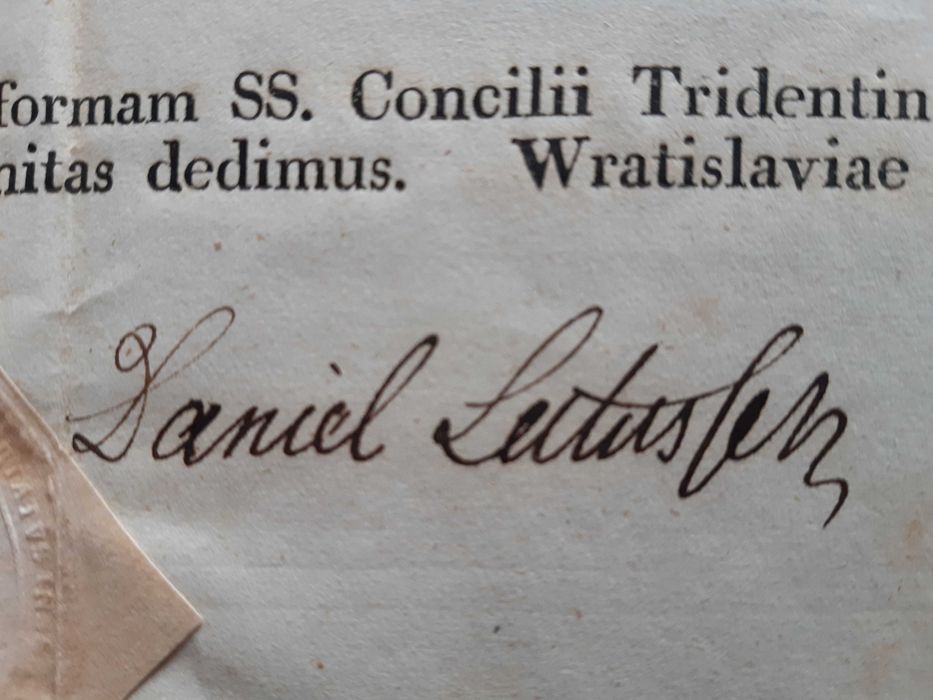 formam SS. Concilii Tridentin
nitas dedimus. Wratislaviae
Daniel Latussek